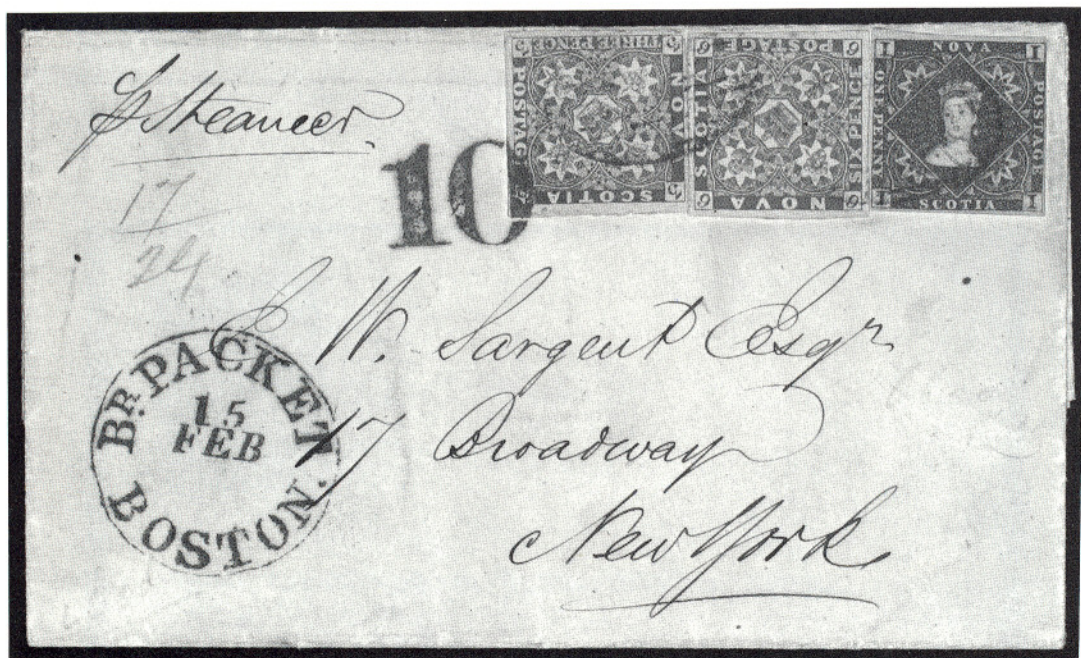 p Steamer
17
24
10
THREE PENCE
POSTAGE
NOVA
SCOTIA
3
3
3
POSTAGE
SCOTIA
SIX PENCE
NOVA
6
6
6
6
NOVA
ONE PENNY
POSTAGE
SCOTIA
1
1
1
1
BR PACKET
15
FEB
BOSTON.
W. Sargent Esqr
17 Broadway
New York